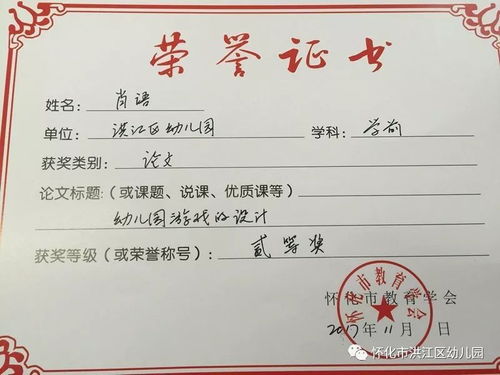 荣誉证书
姓名：肖语
单位：洪江区幼儿园 学科：学前
获奖类别：论文
论文标题：（或课题、说课、优质课等）
幼儿园游戏的设计
获奖等级（或荣誉称号）：贰等奖
怀化市教育学会
怀化市教育学会
2017年11月 日
怀化市洪江区幼儿园